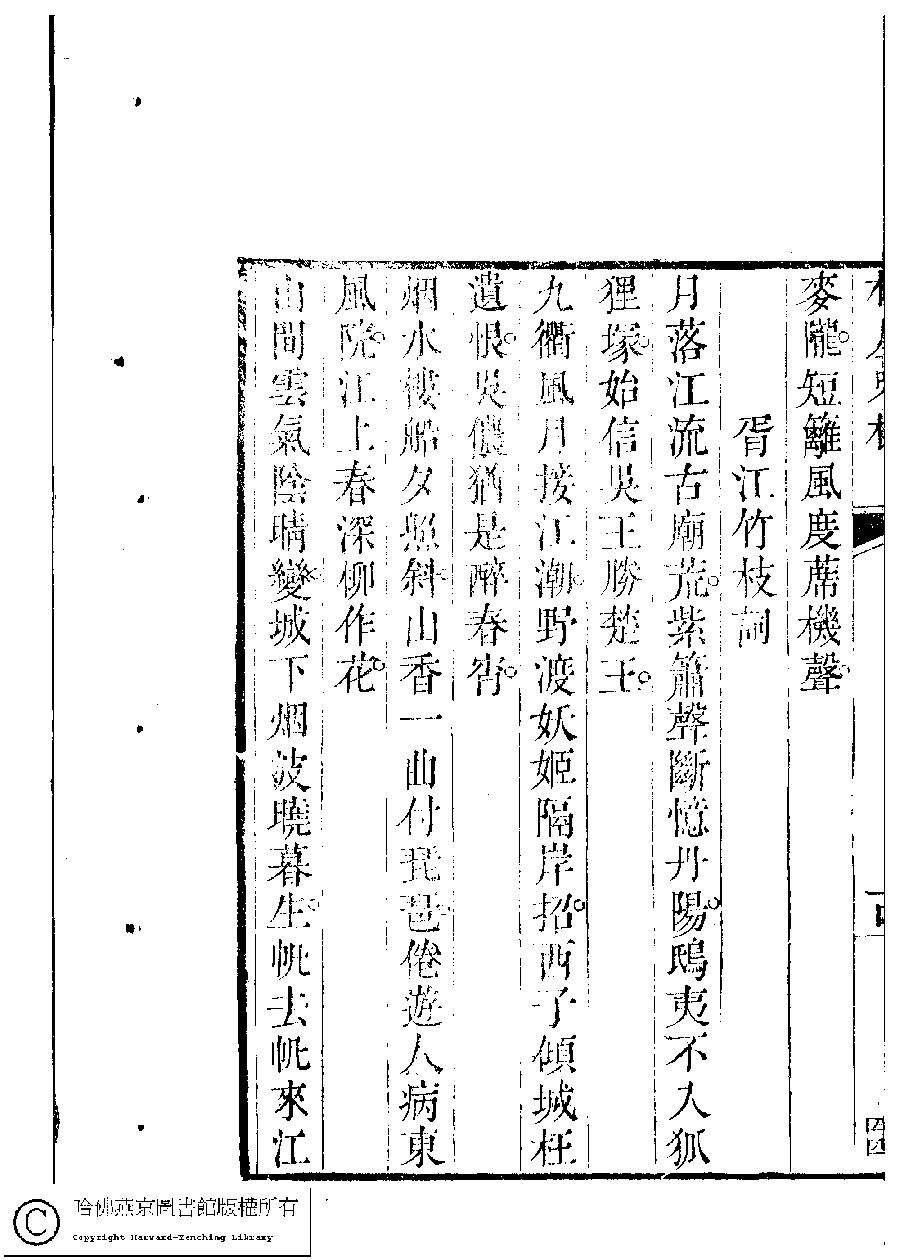 麥隴短籬風度蓆機聲
胥江竹枝詞
月落江流古廟荒紫簫聲斷憶丹陽鴟夷不入狐
狸塚始信吳王勝楚王
九衢風月接江潮野渡妖姬隔岸招西子傾城枉
遺恨吳儂猶是醉春宵
烟水樓船夕照斜山香一曲付琵琶倦遊人病東
風院江上春深柳作花
山間雲氣陰晴變城下烟波曉暮生帆去帆來江
哈佛燕京圖書館版權所有
Copyright Harvard-Yenching Library